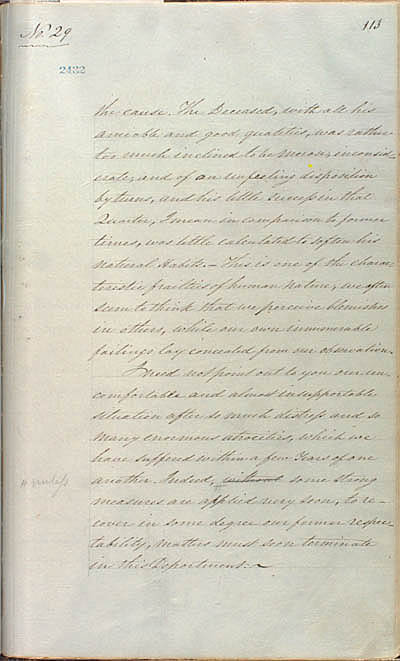 No. 29
113
2432
the cause. The Deceased, with all his
amiable and good qualities, was rather
too much inclined to be morose, inconsid-
erate, and of an unfeeling disposition
by turns, and his little success in that
Quarter, I mean in comparison to former
times, was little calculated to soften his
natural Habits. — This is one of the charac-
teristic frailties of human nature; we often
seem to think that we perceive blemishes
in others, while our own innumerable
failings lay concealed from our observation.
I need not point out to you our un-
comfortable and almost insupportable
situation after so much distress and so
many enormous atrocities, which we
have suffered within a few Years of one
" unless
another. Indeed, without some strong
measures are applied very soon, to re-
cover in some degree our former respec-
tability, matters must soon terminate
in this Department. ~